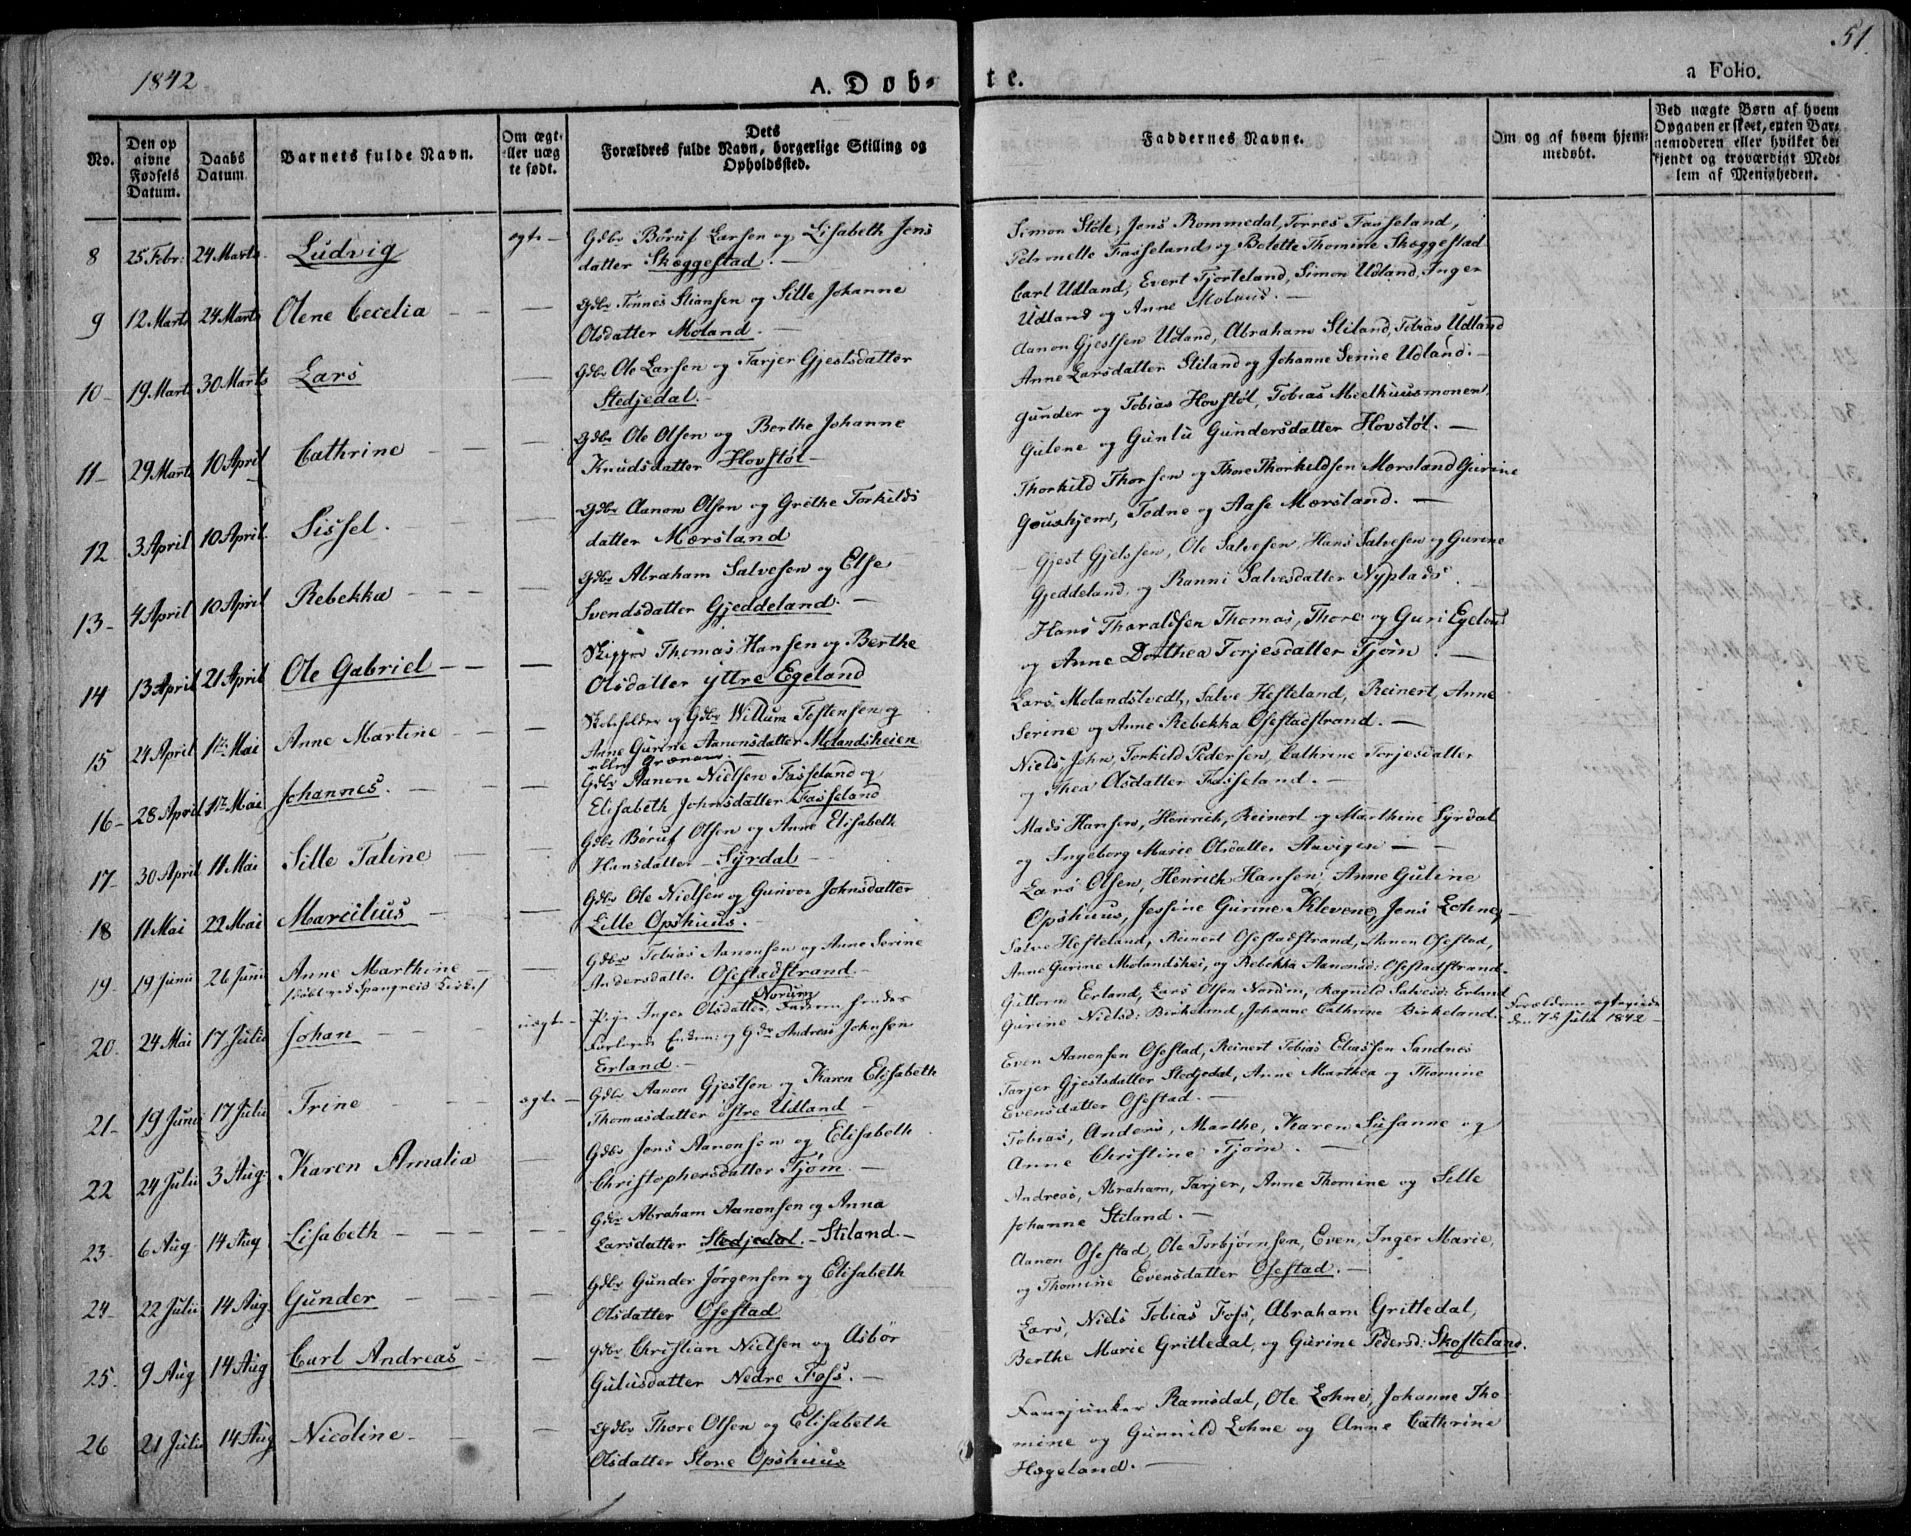 1842
A. Døb-
te.
51.
a Folio.
No.
Den opgivne Fødsels Datum.
Daabs Datum
Barnets fulde Navn.
Om ægte eller uægte født.
Dets Forældres fulde Navn, borgerlige Stilling og Opholdssted.
Faddernes Navne.
Om og af hvem hjemmedøbt.
Ved uægte Børn af hvem Opgaven er skeet, enten Barnemoderen eller hvilket bekjendt og troværdigt Medlem af Menigheden.
8 25 Febr: 24 Marts Ludvig ægte – Gdbr Børuf Larsen og Lisabeth Jens
datter Skeggestad. –
Simon Støle, Jens Rommedal, Torres Fasseland,
Petronelle Fasseland og Bolette Thomine Skeggestad
9 12 Marts 24 Marts Olene Cecelia – – – Gdbr Tønnes Stiansen og Sille Johanne
Olsdatter Moland. –
Carl Udland, Evert Fjorteland, Simon Udland, Inger
Udland og Anne Moland. –
10 – 19 Marts 30 Marts Lars – Gdbr Ole Larsen og Tarjer Gjestsdatter
Stedjedal. –
Aanon Gjestsen Udland, Abraham Stiland, Tobias Udland
Anne Larsdatter Stiland og Johanne Serine Udland. –
11 – 29 Marts 10 April Cathrine – – – Gdbr Ole Olsen og Berthe Johanne
Knudsdatter Hovstøl –
Gunder og Tobias Hovstøl, Tobias Meelhuusmonen,
Gulene og Guntu Gundersdatter Hovstøl. –
12 3 April 10 April. Sissel. – – Gdbr Aanon Olsen og Grethe Torkilds
datter Mærsland
Thorkild Thorsen og Thore Thorkildsen Mærsland Gurine
Goushjem, Todne og Aase Mærsland. –
13 – 4 April 10 April Rebekka – – – – Gdbr Abraham Salvesen og Else
Svendsdatter Gjeddeland. –
– Gjest Gjelssen, Ole Salvesen, Hans Salvesen og Gurine
Gjeddeland, og Ranni Salvesdatter Nyplads. –
14 13 April 21 April Ole Gabriel – – – Skipper Thomas Hansen og Berthe
Olsdatter yttre Egeland
Hans Tharaldsen Thomas, Thore og Guri Egeland
og Anne Dorthea Torjesdatter Tjøm. –
15 24 April 1ste Mai Anne Martine – – – Skoleholder og Gdbr Willum Tostensen og
Anne Gurine Aanonsdatter Molandsheien
Lars Molandstvedt, Salve Hefteland, Reinert, Anne
Serine og Anne Rebekka Osestadstrand. –
16 – 28 April 1ste Mai Johannes. – – – Gdbr Aanon Nielsen Fasseland og
Elisabeth Johnsdatter Fasseland
Niels, John, Torkild Pedersen, Cathrine Torjesdatter
og Thea Olsdatter Fasseland. –
17 – 30 April 11 Mai Sille Taline – – Gdbr Børuf Olsen og Anne Elisabeth
Hansdatter – Syrdal –
Mads Hansen, Henrich, Reinert og Marthine Syrdal
og Ingeborg Marie Olsdatter Aavigen – –
18 11 Mai 22 Mai Marcilius – – Gdbr Ole Nielsen og Gunvor Johnsdatter
Lille Opshuus. –
Lars Olsen, Henrich Hansen, Anne Guline
Opshuus, Jessine Gurine Klevene, Jens Lohne –
19 – 19 Junii 26 Junii Anne Marthine – – Gdbr Tobias Aanonsen og Anne Serine
/ døbt ved Spangreids Kirke /
Andersdatter Osestadstrand –
Salve Hefteland, Reinert Osestadstrand, Aanon Osestad,
Anne Gurine Molandshei, og Rebekka Aanonsd: Osestadstrand. –
20. 24 Mai 17 Julii Johan – – uægte – Pige Inger Olsdatter Norum
og Gdbr Andreas Johnsen
Erland. –
Guttorm Erland, Lars Olsen Nordm, Ragnild Salvesd: Erland
Gurine Nielsd: Birkeland, Johanne Cathrine Birkeland.
Forældrene ægteviede
den 7de Julii 1842 –
21 – 19 Junii 17 Julii Trine – – ægte – Gdbr Aanon Gjestsen og Karen Elisabeth
Thomasdatter østre Udland –
Even Aanonsen Osestad, Reinert Tobias Eliassen Sandnes
Tarjer Gjestsdatter Stedjedal, Anne Marthea og Thomine
Evensdatter Osestad. –
22 24 Julii 3 Aug: Karen Amalia – Gdbr Jens Aanonsen og Elisabeth
Christophersdatter Tjøm. –
Tobias, Anders, Marthe, Karen Susanne og
Anne Christine Tjøm. –
23 – 6 Aug 14 Aug Lisabeth – – – – Gdbr Abraham Aanonsen og Anna
Larsdatter Stedjedal. – Stiland. –
Andreas, Abraham, Tarjer, Anne Thomine og Sille
Johanne Stiland. –
24 – 22 Julii 14 Aug. Gunder – – – – Gdbr Gunder Jørgensen og Elisabeth
Olsdatter Osestad
Aanon Osestad, Ole Torbjørnsen, Even, Inger Marie,
og Thomine Evensdatter Osestad. –
25 – 9 Aug 14 Aug Carl Andreas – – Gdbr Christian Nielsen og Asbør
Gulusdatter Nedre Foss. –
Lars, Niels Tobias Foss, Abraham Grittedal,
Berthe Marie Grittedal, og Gurine Pedersd: Skofteland.
26 21 Julii 14 Aug Nicoline – – – Gdbr Thore Olsen og Elisabeth
Olsdatter Store Opshuus
Faurjunker Ramsdal, Ole Lohne, Johanne Tho
mine og Gunnild Lohne og Anne Cathrine
Hægeland. –